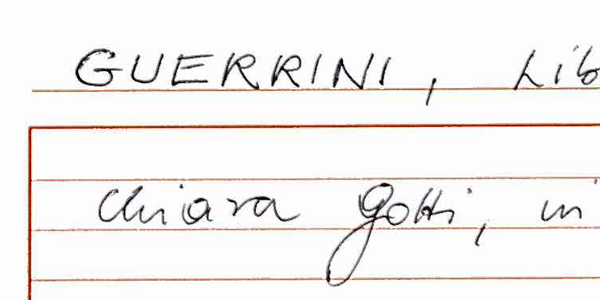 GUERRINI, Lib
Chiara Gotti, in